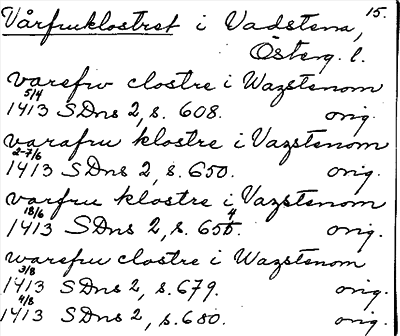 Vårfruklostret i Vadstena, 15.
Österg. l.
varefrv clostre i Wazstenom
5/4
1413 SDns 2, s. 608. orig.
varafru klostre i Vazstenom
2-7/6
1413 SDns 2, s. 650. orig.
varfru klostre i Vazstenom
18/6
1413 SDns 2, s. 654. orig.
warefru clostre i Wazstenom
3/8
1413 SDns 2, s. 679. orig.
4/8
1413 SDns 2, s. 680. orig.